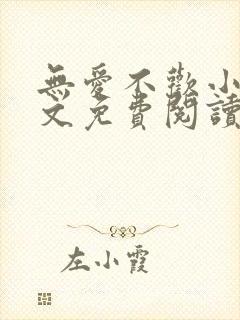 無愛不歡小
文免費閱讀
左小霞